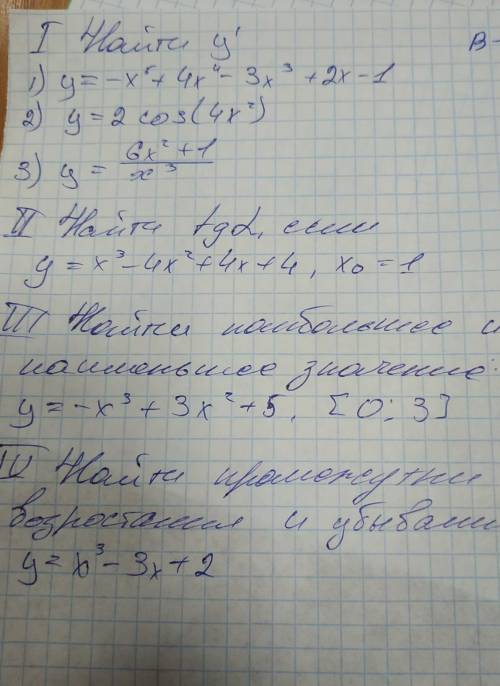 I Найти y'
В-
1) y = -x⁵ + 4x⁴ - 3x³ + 2x - 1
2) y = 2 cos(4x²)
3) y = (6x² + 1)/x³
II Найти tgα, если
y = x³ - 4x² + 4x + 4, x₀ = 1
III Найти наибольшее и
наименьшее значение:
y = -x³ + 3x² + 5, [0; 3]
IV Найти промежутки
возростания и убывани
y = x³ - 3x + 2